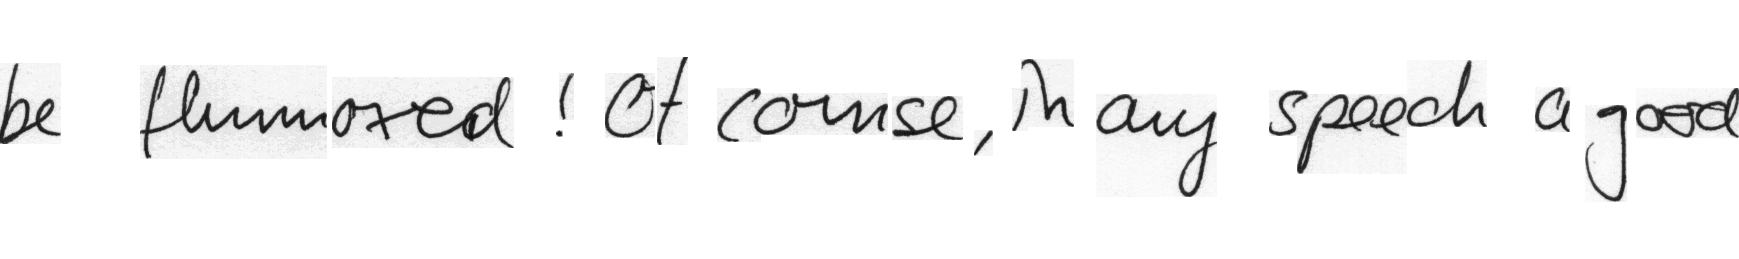 be flummoxed! Of course, in any speech a good